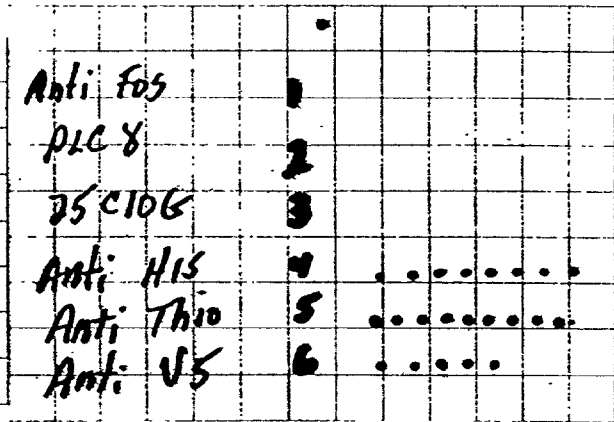 Anti Fos 1
PLC 8 2
25C10G 3
Anti His 4
Anti Thio 5
Anti V5 6